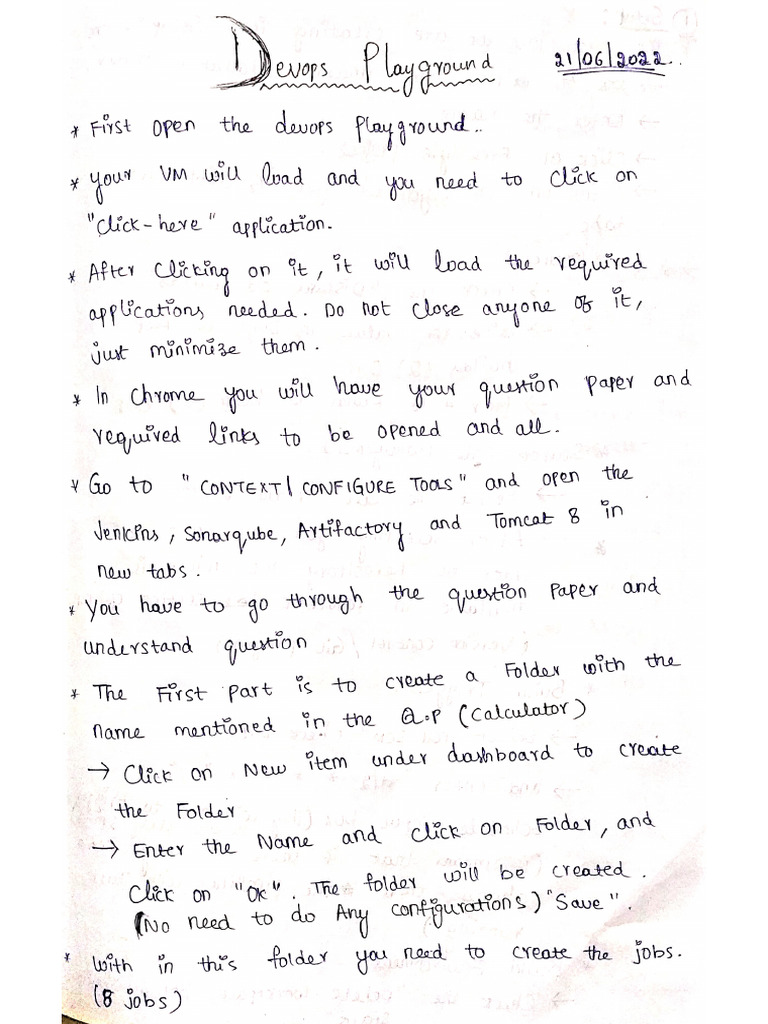 Devops Playground 21/06/2022..
* First open the devops Playground..
* Your VM will load and you need to click on
"Click-here" application.
* After clicking on it, it will load the required
applications needed. Do not close anyone of it,
just minimize them.
* In Chrome you will have your question paper and
required links to be opened and all.
* Go to "CONTEXT| CONFIGURE TOOLS" and open the
Jenkins, Sonarqube, Artifactory and Tomcat 8 in
new tabs.
* You have to go through the question paper and
understand question
* The First part is to create a Folder with the
name mentioned in the Q.P (Calculator)
→ Click on New item under dashboard to create
the Folder
→ Enter the Name and click on Folder, and
Click on "Ok". The folder will be created.
(No need to do Any configurations) "Save".
* with in this folder you need to create the jobs.
(8 jobs)